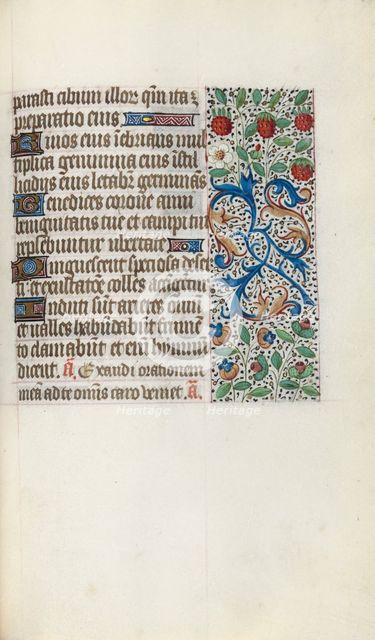 parasti cibum illoꝝ qm̄ ita ē
preparatio eius
Riuos eius īebrians mul
tiplica genimina eius ī stil
licidijs eius letabit̄ germinās
Benedices corone anni
benignitatis tue et campi tui
replebuntur ubertate
Pinguescent speciosa deser
ti et exultatiōe colles accigent̄
Induti sūt arietes ouiū
et ualles habūdabūt frumē
to clamabūt et enī hymnū
dicent. a. Exaudi orationem
meā ad te omīs caro ueniet. a.
Heritage Heritage